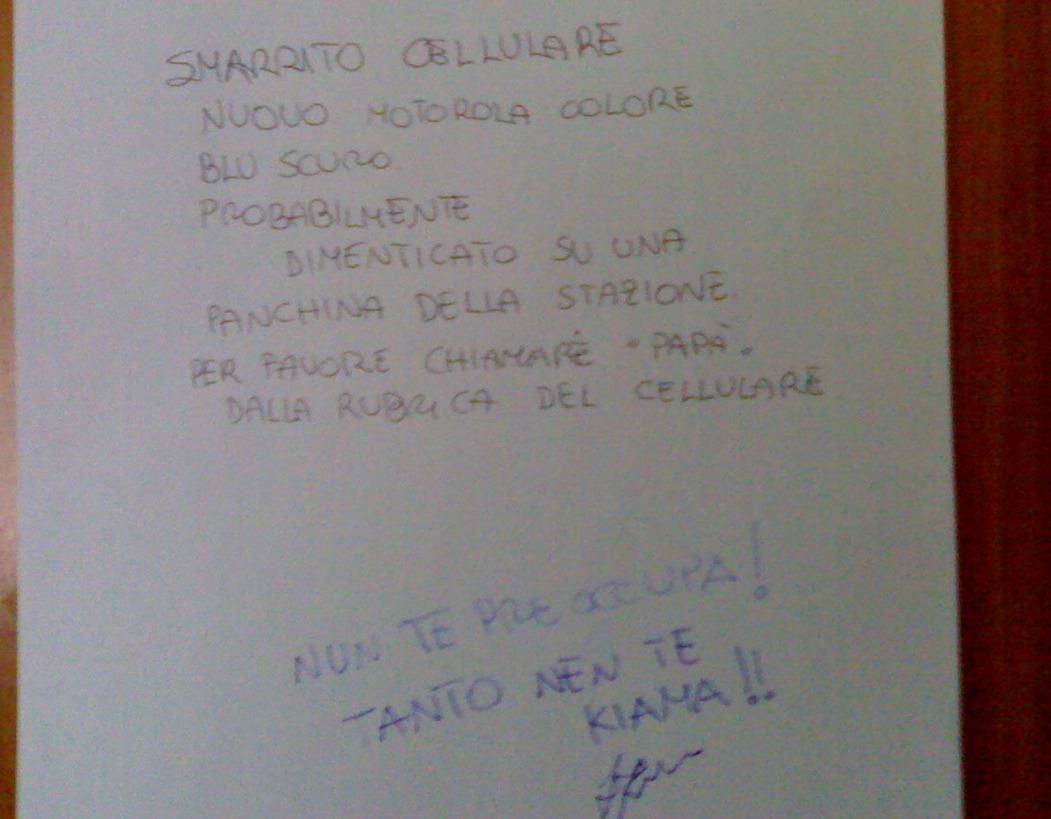 SMARRITO CELLULARE
NUOVO MOTOROLA COLORE
BLU SCURO.
PROBABILMENTE
DIMENTICATO SU UNA
PANCHINA DELLA STAZIONE.
PER FAVORE CHIAMARE "PAPÀ"
DALLA RUBRICA DEL CELLULARE.
NUN TE PREOCCUPA!
TANTO NEN TE
KIAMA!!